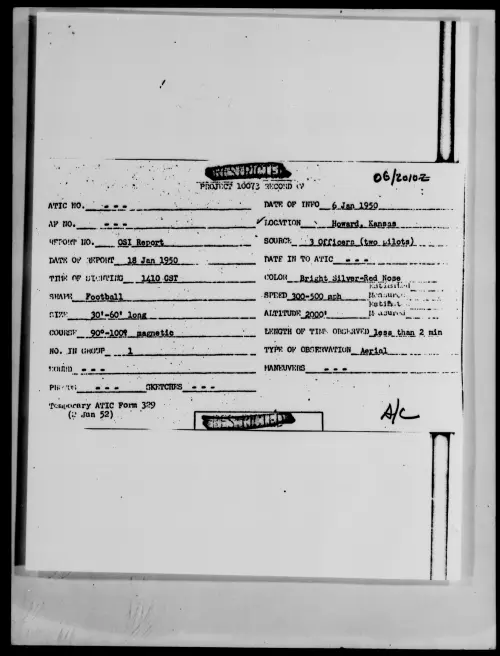 RESTRICTED
06/2010Z
PROJECT 10073 RECORD
ATIC NO. - - -
DATE OF INFO 6 Jan 1950
AF NO. - - -
✓LOCATION Howard, Kansas
REPORT NO. OSI Report
SOURCE 3 Officers (two pilots)
DATE OF REPORT 18 Jan 1950
DATE IN TO ATIC - - -
TIME OF SIGHTING 1410 CST
COLOR Bright Silver-Red Nose
SHAPE Football
SPEED 300-500 mph
Estimated
Measured
SIZE 30'-60' long
ALTITUDE 2000'
Estimat
Measured
COURSE 90°-100° magnetic
LENGTH OF TIME OBSERVED less than 2 min
NO. IN GROUP 1
TYPE OF OBSERVATION Aerial
SOUND - - -
MANEUVERS - - -
PHOTOS - - - SKETCHES - - -
Temporary ATIC Form 329
(2 Jan 52)
A/C
RESTRICTED